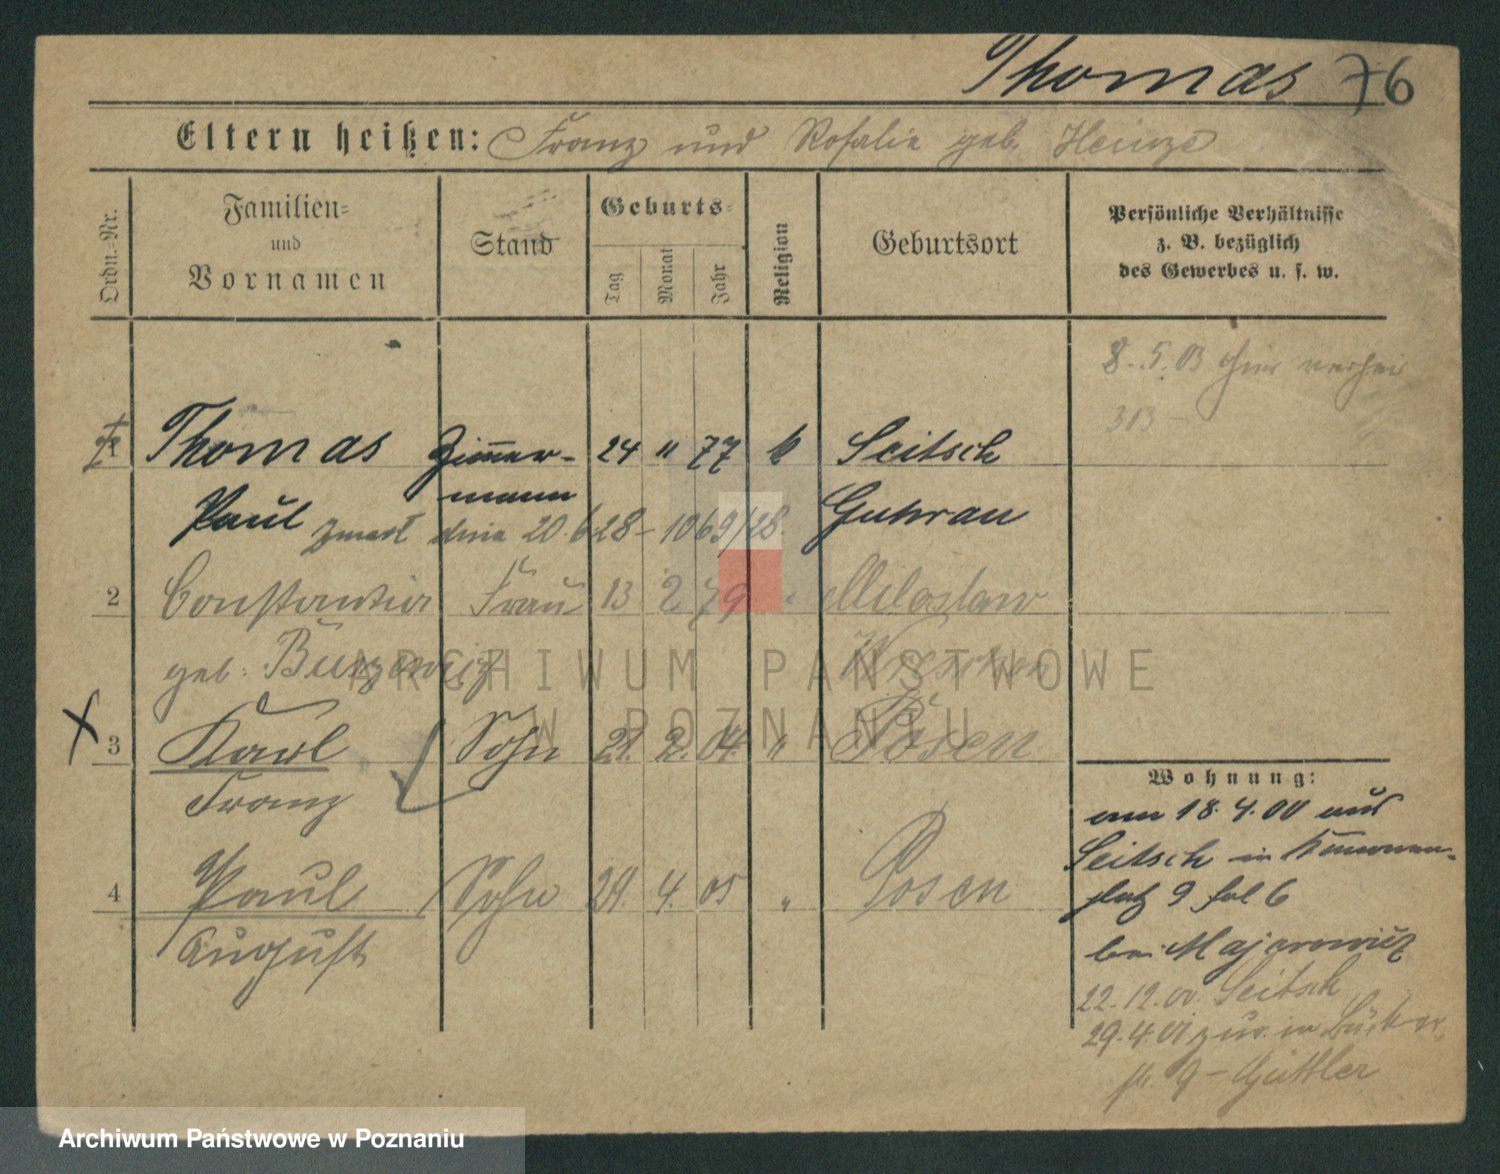 Thomas 76
Eltern heißen: Franz und Rosalie geb. Heinze
Ordn.-Nr.
Familien-
und
Vornamen
Stand
Geburts-
Tag
Monat
Jahr
Religion
Geburtsort
Persönliche Verhältnisse
z. B. bezüglich
des Gewerbes u. s. w.
8.5.03 hier
313
1 Thomas Zimmer- 24 " 77 k Seitsch
mann
Paul zmarł dnia 20.6.28 - 1069/28 Guhrau
2 Constantia Frau 13 2 79 " Miloslaw
geb. Wreschen
3 Karl Sohn 21. 2. 04 " Posen
Franz
4 Paul Sohn 29. 4. 05 " Posen
August
Wohnung:
am 18.4.00 aus
Seitsch in
platz 9 bei 6
bei Majerowicz
22.12.00 Seitsch
29.4.01 zur. in Bäcker
str. 9 - Güttler
ARCHIWUM PAŃSTWOWE
W POZNANIU
Archiwum Państwowe w Poznaniu